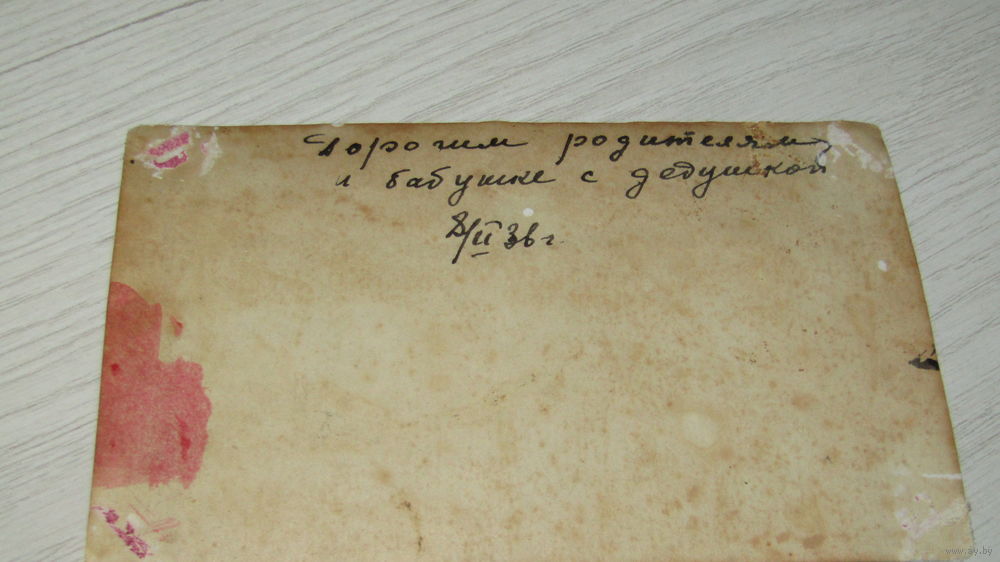 Дорогим родителям
и бабушке с дедушкой
8/II 36 г.
www.ay.by